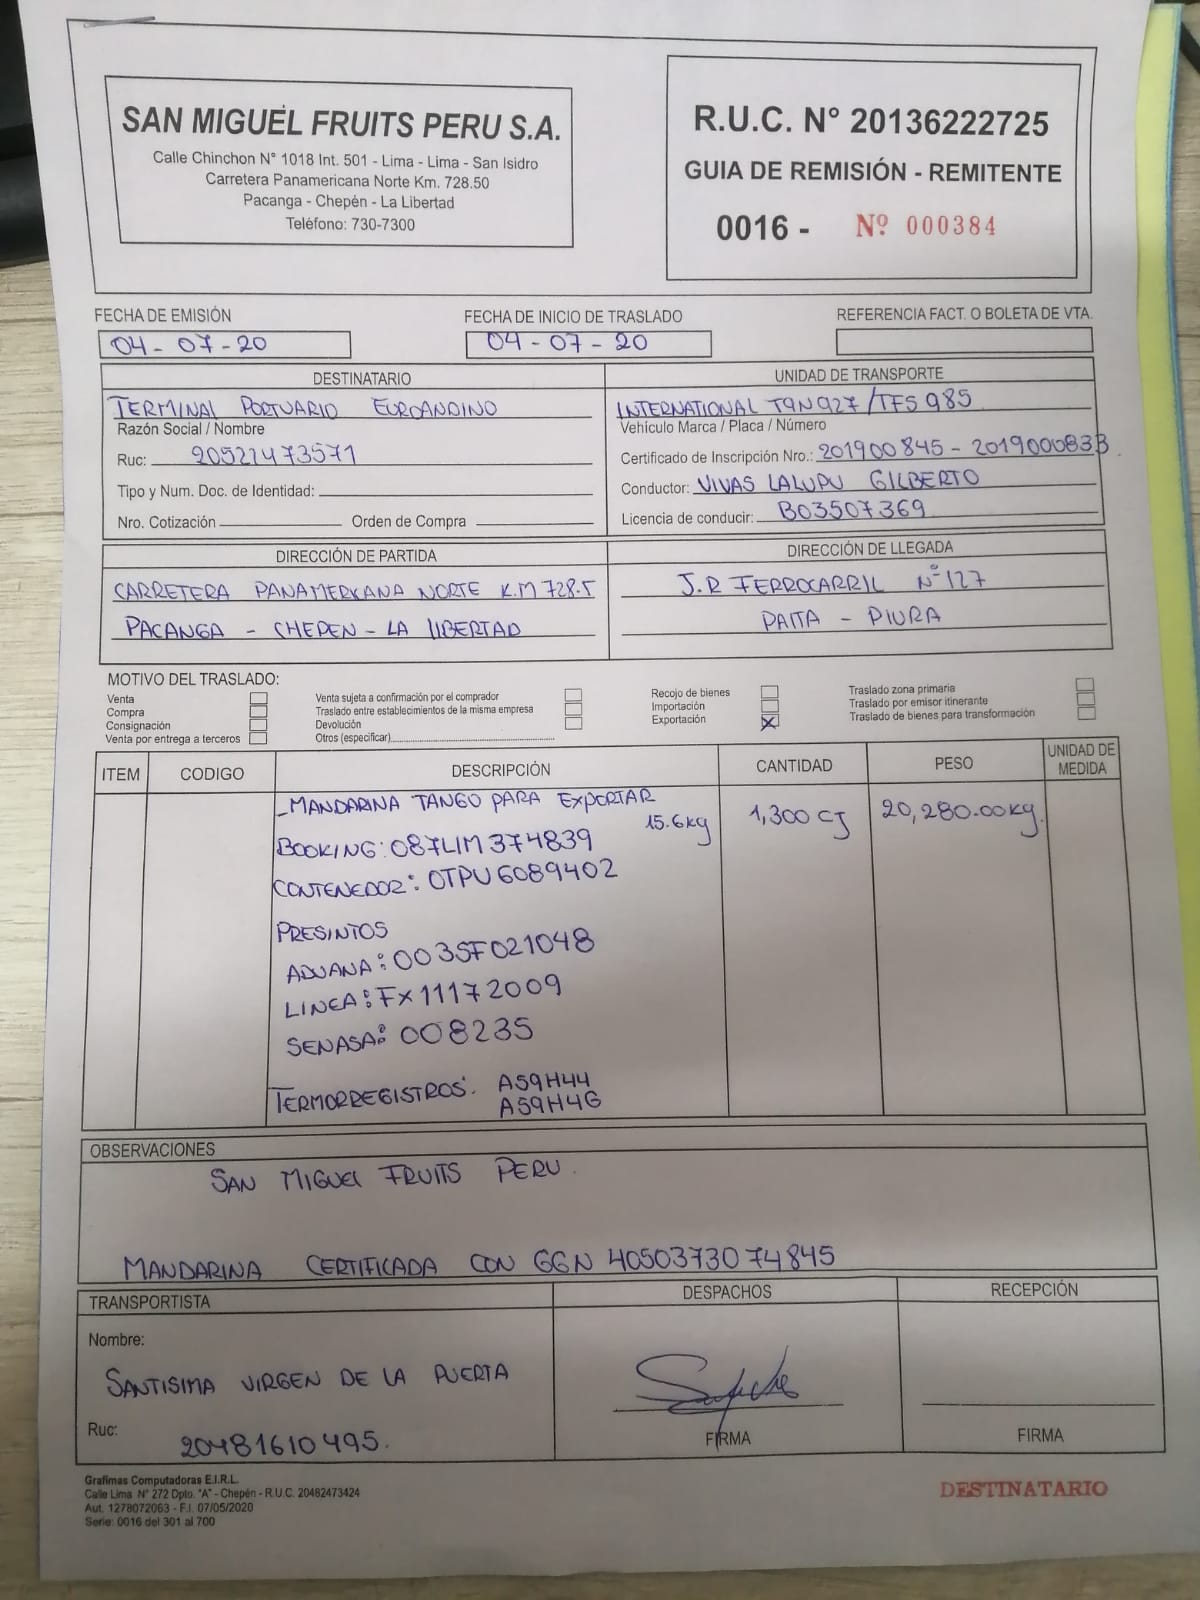 SAN MIGUEL FRUITS PERU S.A.
Calle Chinchon N° 1018 Int. 501 - Lima - Lima - San Isidro
Carretera Panamericana Norte Km. 728.50
Pacanga - Chepén - La Libertad
Teléfono: 730-7300
R.U.C. N° 20136222725
GUIA DE REMISIÓN - REMITENTE
0016 - Nº 000384
FECHA DE EMISIÓN
04-07-20
FECHA DE INICIO DE TRASLADO
04-07-20
REFERENCIA FACT. O BOLETA DE VTA.
DESTINATARIO
TERMINAL PORTUARIO EUROANDINO
Razón Social / Nombre
Ruc: 20521473571
Tipo y Num. Doc. de Identidad:
Nro. Cotización Orden de Compra
UNIDAD DE TRANSPORTE
INTERNATIONAL T9N927/TFS985
Vehículo Marca / Placa / Número
Certificado de Inscripción Nro.: 201900845 - 201900083B
Conductor: VIVAS LALUPU GILBERTO
Licencia de conducir: B03507369
DIRECCIÓN DE PARTIDA
CARRETERA PANAMERICANA NORTE K.M 728.5
PACANGA - CHEPEN - LA LIBERTAD
DIRECCIÓN DE LLEGADA
J.R FERROCARRIL N° 127
PAITA - PIURA
MOTIVO DEL TRASLADO:
Venta
Compra
Consignación
Venta por entrega a terceros
Venta sujeta a confirmación por el comprador
Traslado entre establecimientos de la misma empresa
Devolución
Otros (especificar)
Recojo de bienes
Importación
Exportación X
Traslado zona primaria
Traslado por emisor itinerante
Traslado de bienes para transformación
ITEM CODIGO DESCRIPCIÓN CANTIDAD PESO UNIDAD DE MEDIDA
- MANDARINA TANGO PARA EXPORTAR
15.6kg 1,300 CJ 20,280.00kg.
BOOKING: 087LIM374839
CONTENEDOR: OTPU6089402
PRESINTOS
ADUANA: 0035F021048
LINEA: FX11172009
SENASA: 008235
TERMORREGISTROS: AS9H44
AS9H4G
OBSERVACIONES
SAN MIGUEL FRUITS PERU.
MANDARINA CERTIFICADA CON GGN 4050373074845
TRANSPORTISTA
Nombre:
SANTISIMA VIRGEN DE LA PUERTA
Ruc:
20481610495.
DESPACHOS
FIRMA
RECEPCIÓN
FIRMA
Grafimas Computadoras E.I.R.L.
Calle Lima N° 272 Dpto. "A" - Chepén - R.U.C. 20482473424
Aut. 1278072063 - F.I. 07/05/2020
Serie: 0016 del 301 al 700
DESTINATARIO